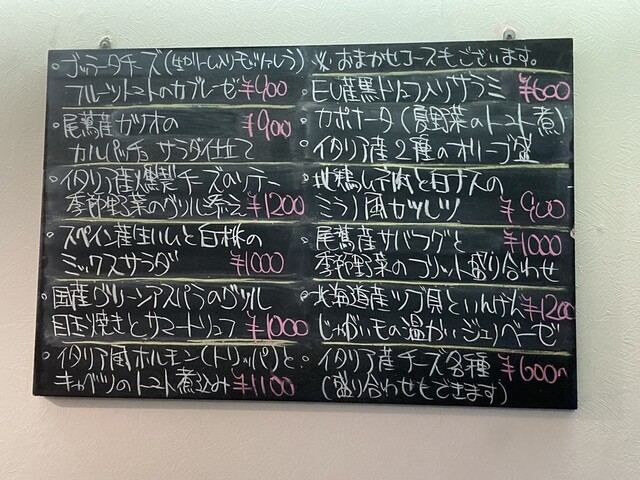 。ブッラータチーズ(生クリーム入りモッツァレラ)
フルーツトマトのカプレーゼ ¥900
。尾鷲産カツオの ¥900
カルパッチョ サラダ仕立て
。イタリア産燻製チーズのソテー
季節野菜のグリル添え ¥1200
。スペイン産生ハムと白桃の
ミックスサラダ ¥1000
。国産グリーンアスパラのグリル
目玉焼きとサマートリュフ ¥1000
。イタリア風ホルモン(トリッパ)と
キャベツのトマト煮込み ¥1100
※おまかせコースもございます。
EU産黒トリュフ入りサラミ ¥600
。カポナータ(夏野菜のトマト煮)
。イタリア産2種のオリーブ盛
。地鶏ムネ肉と白ナスの
ミラノ風カツレツ ¥900
。尾鷲産サバフグと ¥1000
季節野菜のフリット盛り合わせ
。北海道産ツブ貝といんげん ¥1200
じゃがいもの温かいジェノベーゼ
。イタリア産チーズ各種 ¥600〜
(盛り合わせもできます)